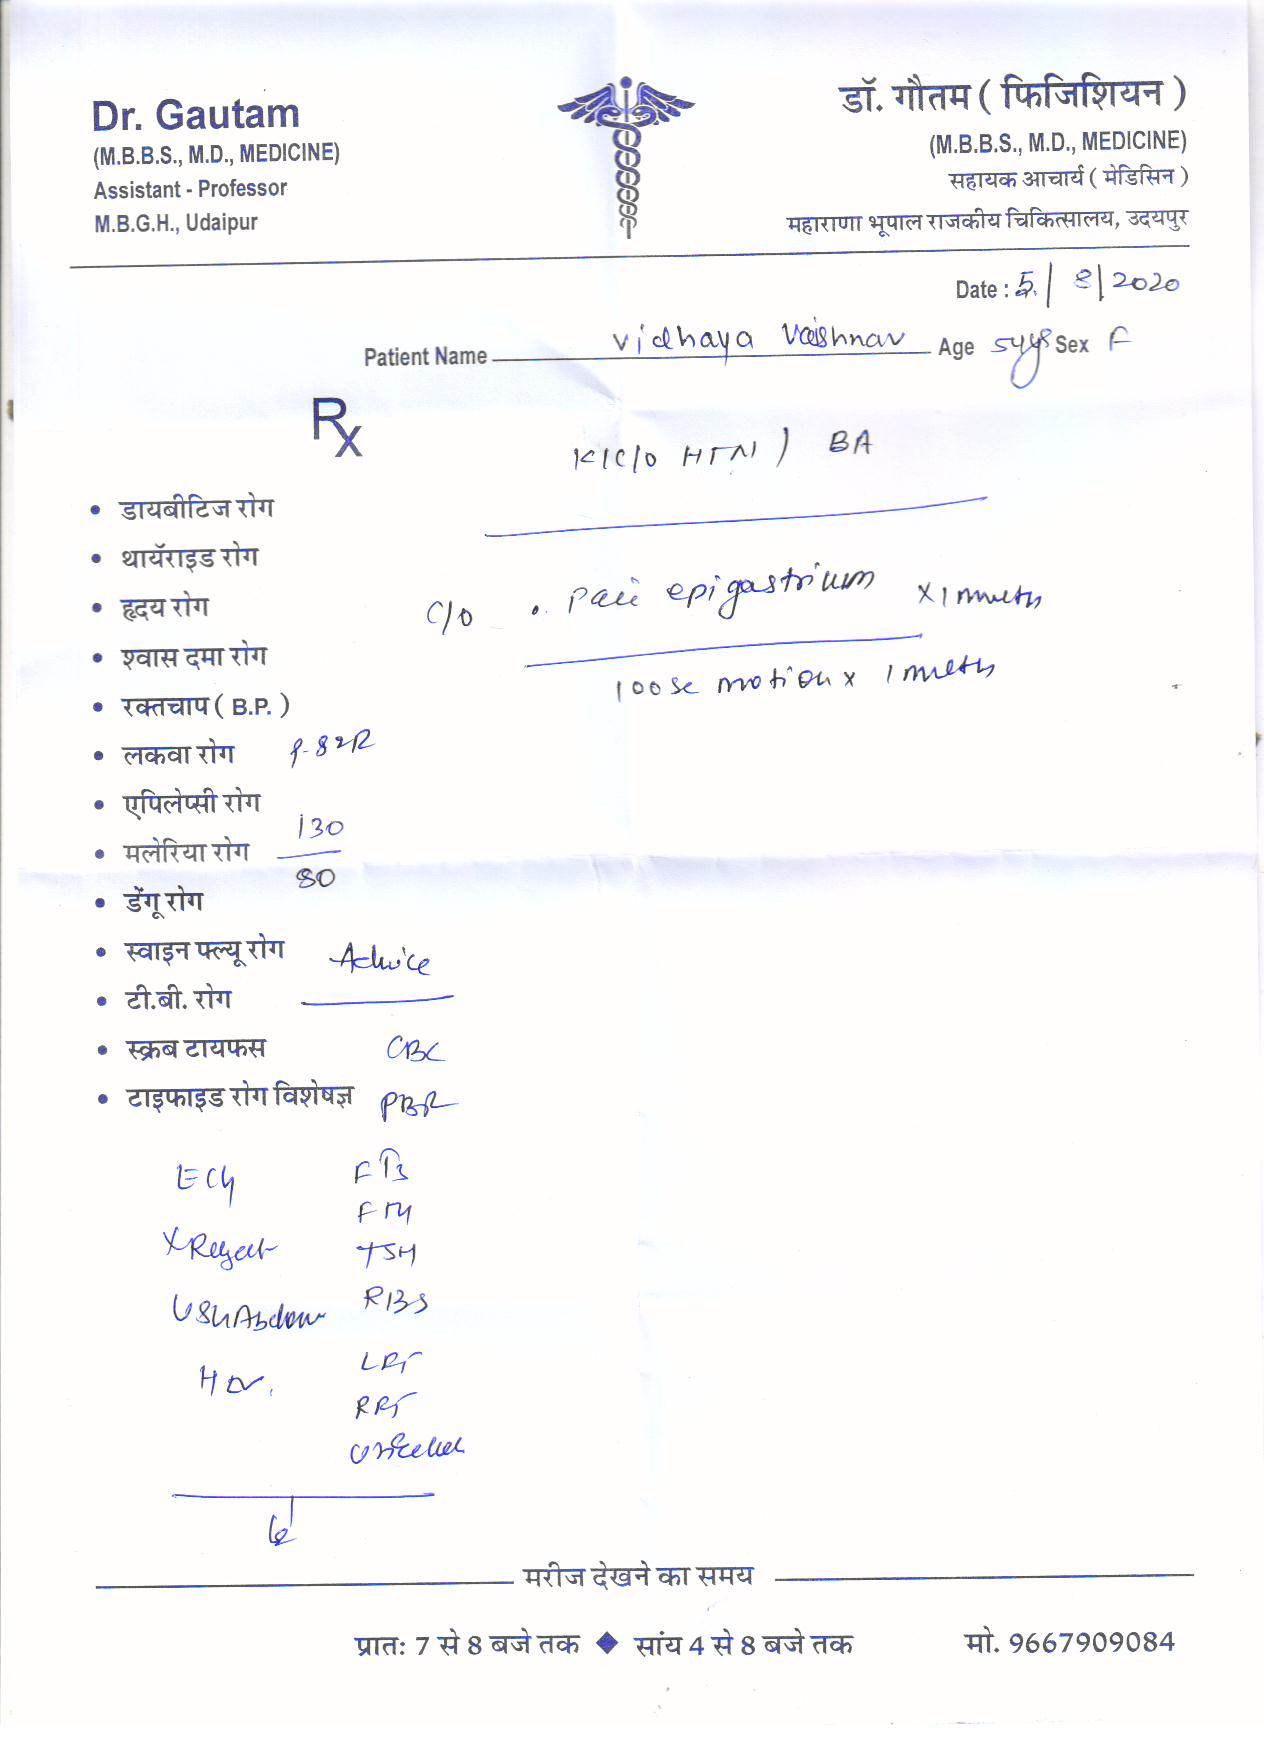 Dr. Gautam
(M.B.B.S., M.D., MEDICINE)
Assistant - Professor
M.B.G.H., Udaipur
डॉ. गौतम ( फिजिशियन )
(M.B.B.S., M.D., MEDICINE)
सहायक आचार्य ( मेडिसिन )
महाराणा भूपाल राजकीय चिकित्सालय, उदयपुर
Date : 5/ 8/2020
Patient Name Vidhaya Vaishnav Age 54yrs Sex F
Rx
K/C/O HTN / BA
• डायबीटिज रोग
• थायॅराइड रोग
• हृदय रोग
C/O • Pain epigastrium X 1 month
• श्वास दमा रोग
loose motion x 1 month
• रक्तचाप ( B.P. )
• लकवा रोग P-82R
• एपिलेप्सी रोग
130
• मलेरिया रोग
80
• डेंगू रोग
• स्वाइन फ्ल्यू रोग Advice
• टी.बी. रोग
• स्क्रब टायफस CBC
• टाइफाइड रोग विशेषज्ञ PBF
ECG FT3
FT4
X Ray TSH
USG Abdom RBS
LFT
RFT
मरीज देखने का समय
प्रातः 7 से 8 बजे तक ◆ सांय 4 से 8 बजे तक मो. 9667909084